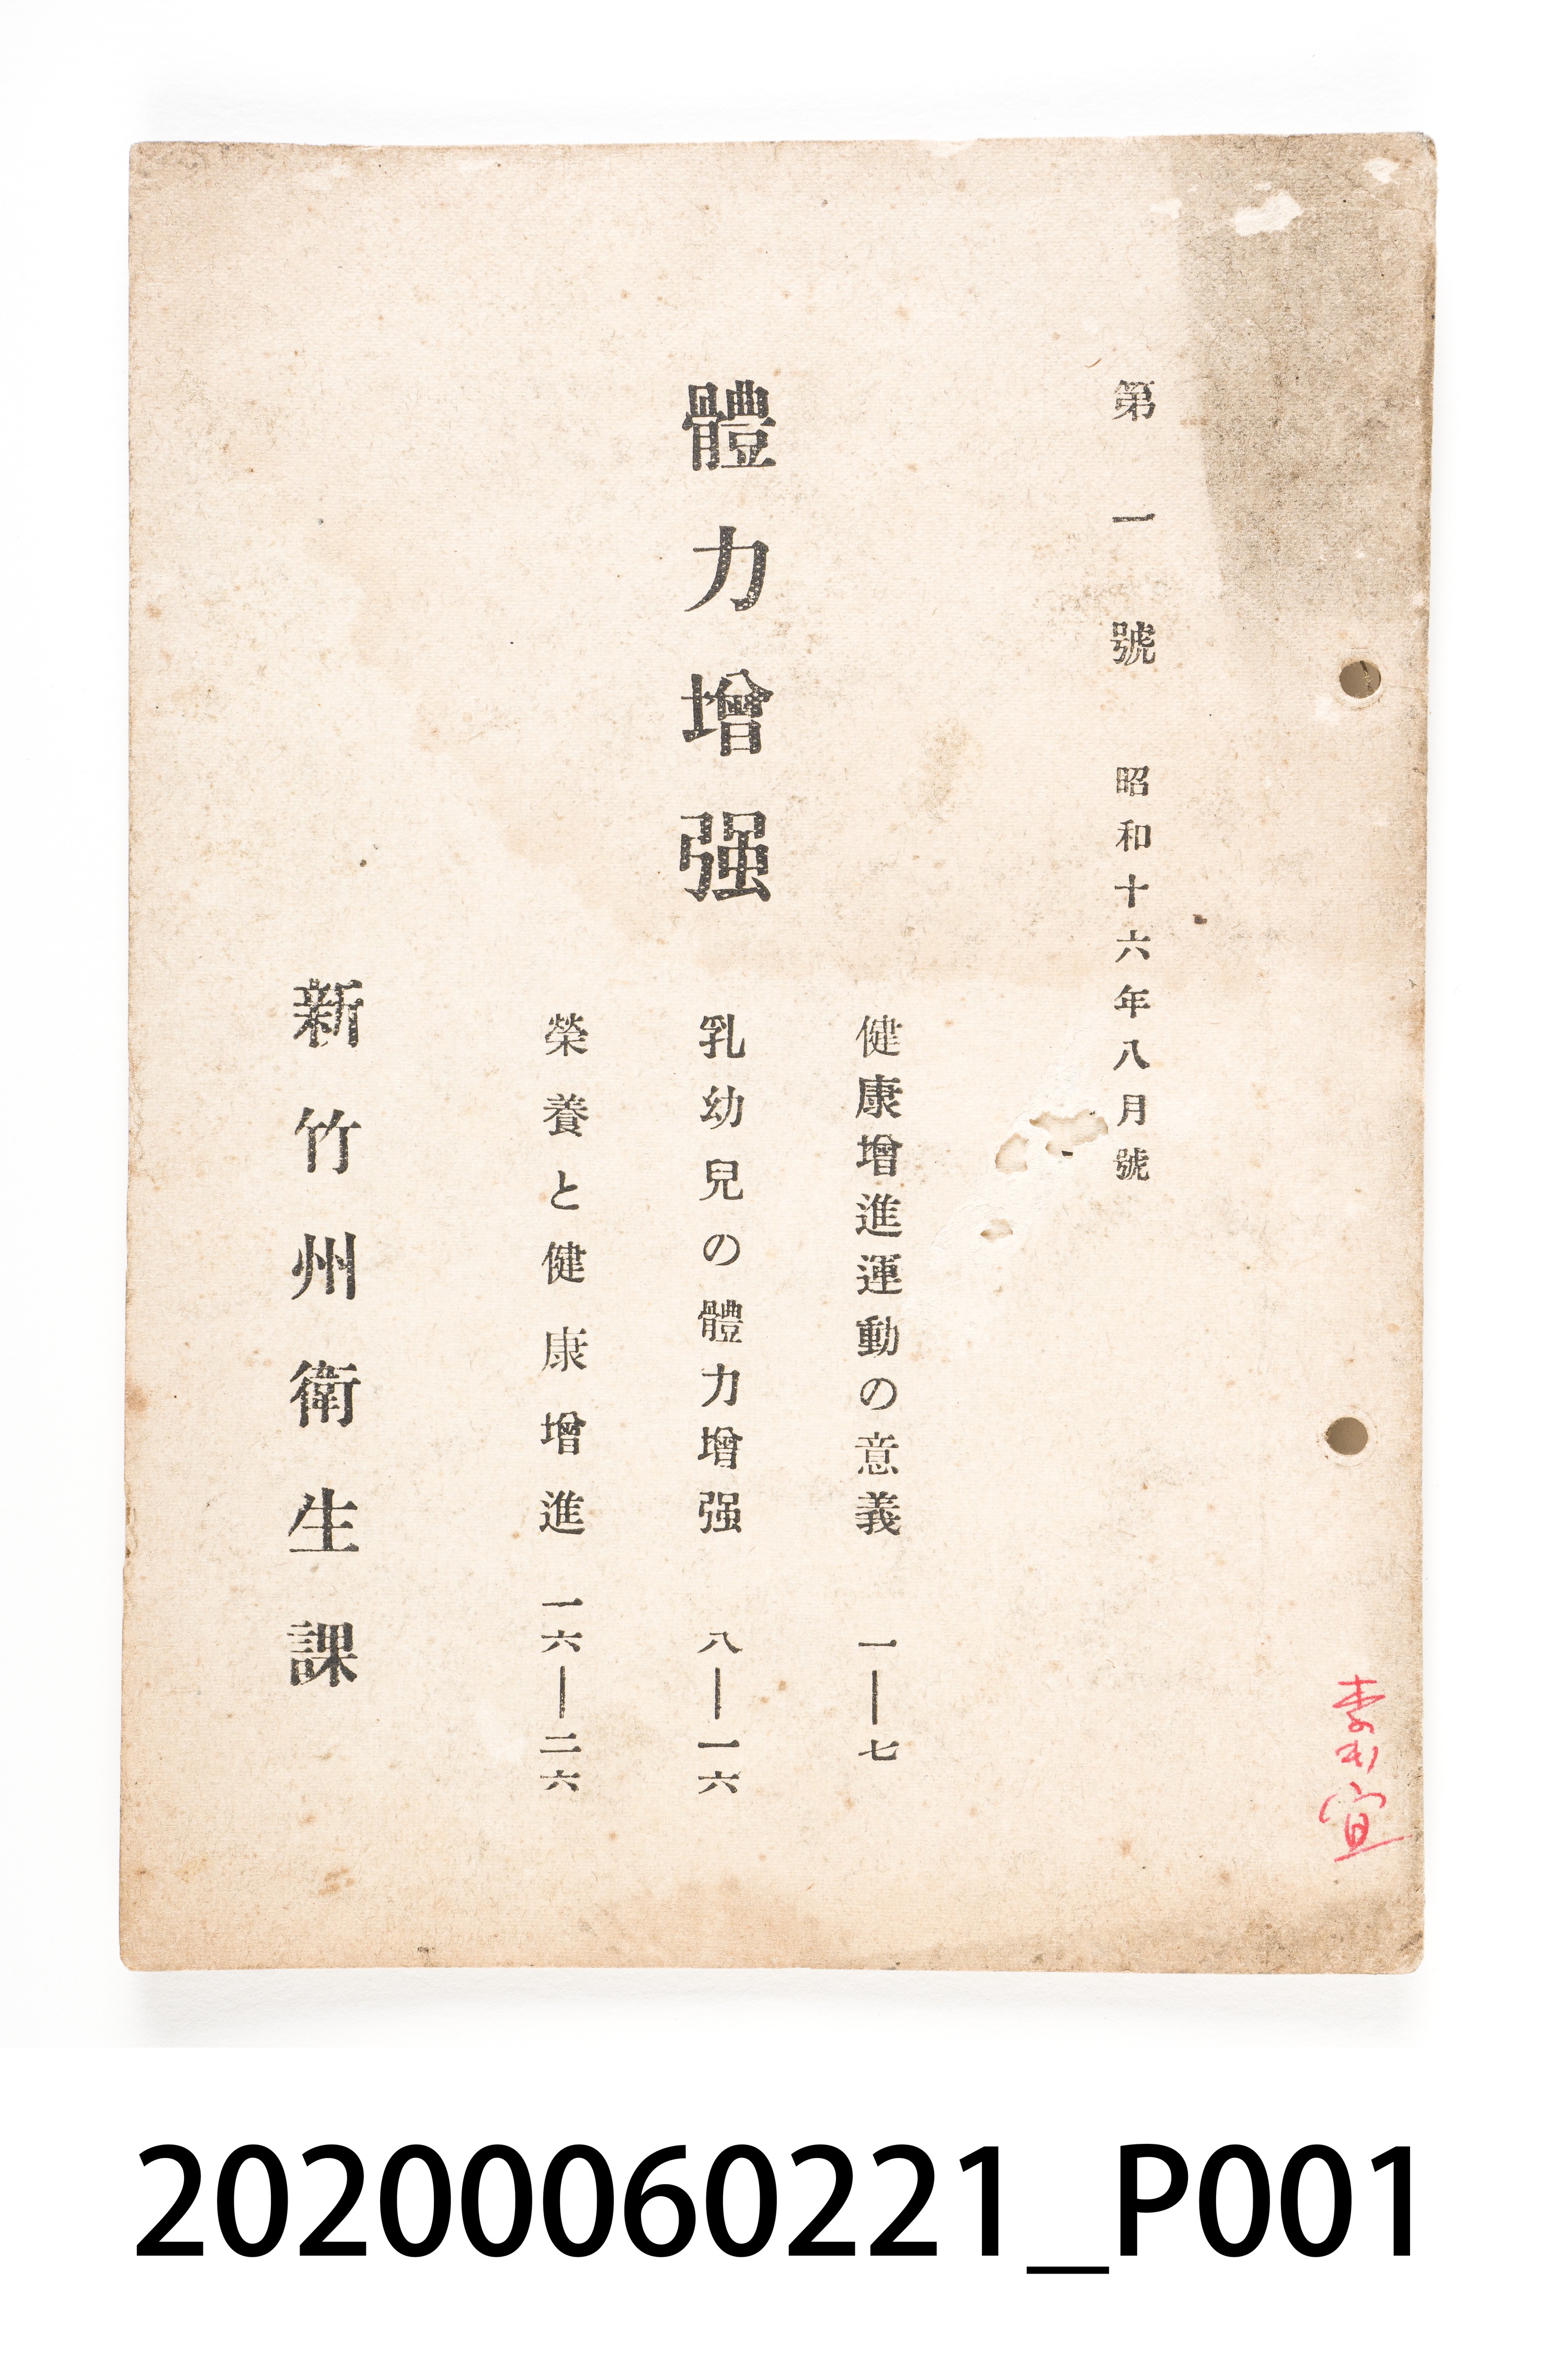 第一號 昭和十六年八月號
體力增强
健康增進運動の意義 一―七
乳幼兒の體力增强 八―一六
榮養と健康增進 一六―二六
新竹州衛生課
20200060221_P001